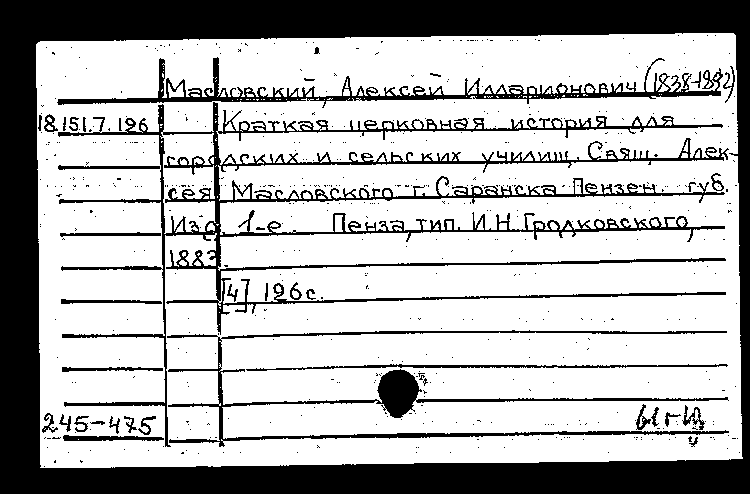 Масловский, Алексей Илларионович (1838-1892)
18.151.7.126 Краткая церковная история для
городских и сельских училищ. Свящ. Алек-
сея Масловского г. Саранска Пензен. губ.
Изд. 1-е Пенза, тип. И.Н. Гродковского,
1883.
[4], 126 с.
245-475